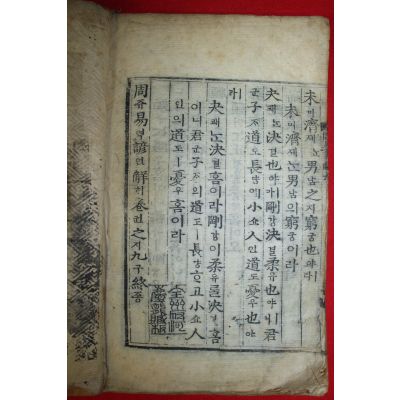 未미濟졔ᄂᆞᆫ男남之지窮궁也야ㅣ라
未미濟졔ᄂᆞᆫ男남의窮궁이라
夬쾌ᄂᆞᆫ決결也야ㅣ라剛강決결柔유也야ㅣ니君
군子ᄌᆞ道도ㅣ長댱에小쇼人인道도ㅣ憂우也야
ㅣ라
夬쾌ᄂᆞᆫ決결홈이라剛강이柔유를決결홈
이니君군子ᄌᆞ의道도ㅣ長댱ᄒᆞ고小쇼人
인의道도ㅣ憂우홈이라
周쥬易역諺언解ᄒᆡ卷권之지九구終죵